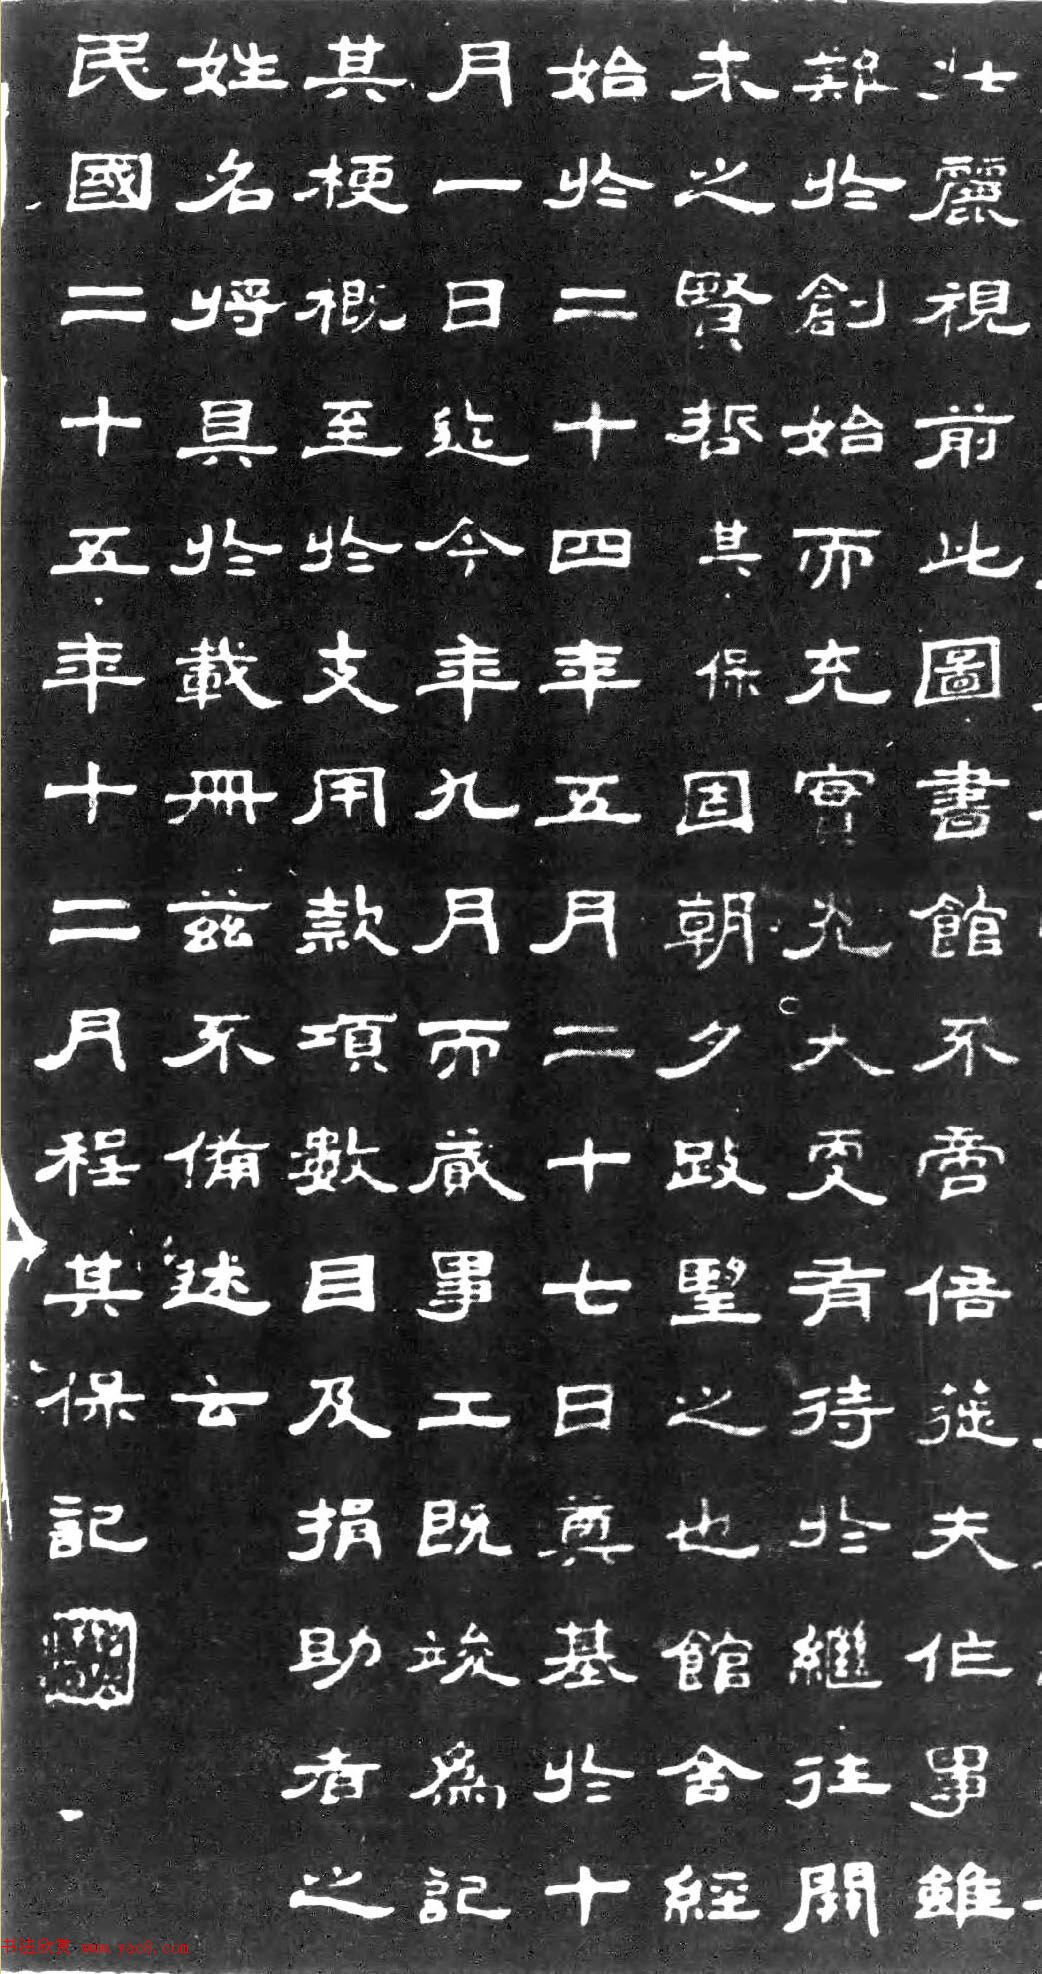 壯麗視前此圖書館不啻倍蓰夫作事雖
難於創始而充實光大更有待於繼往開
來之賢哲其保固朝夕跂望之也館舍經
始於二十四年五月二十七日奠基於十
月一日迄今年九月而蕆事工既竣為記
其梗概至於支用款項數目及捐助者之
姓名將具於載冊茲不備述云
民國二十五年十二月程其保記
书法欣赏 www.yac8.com